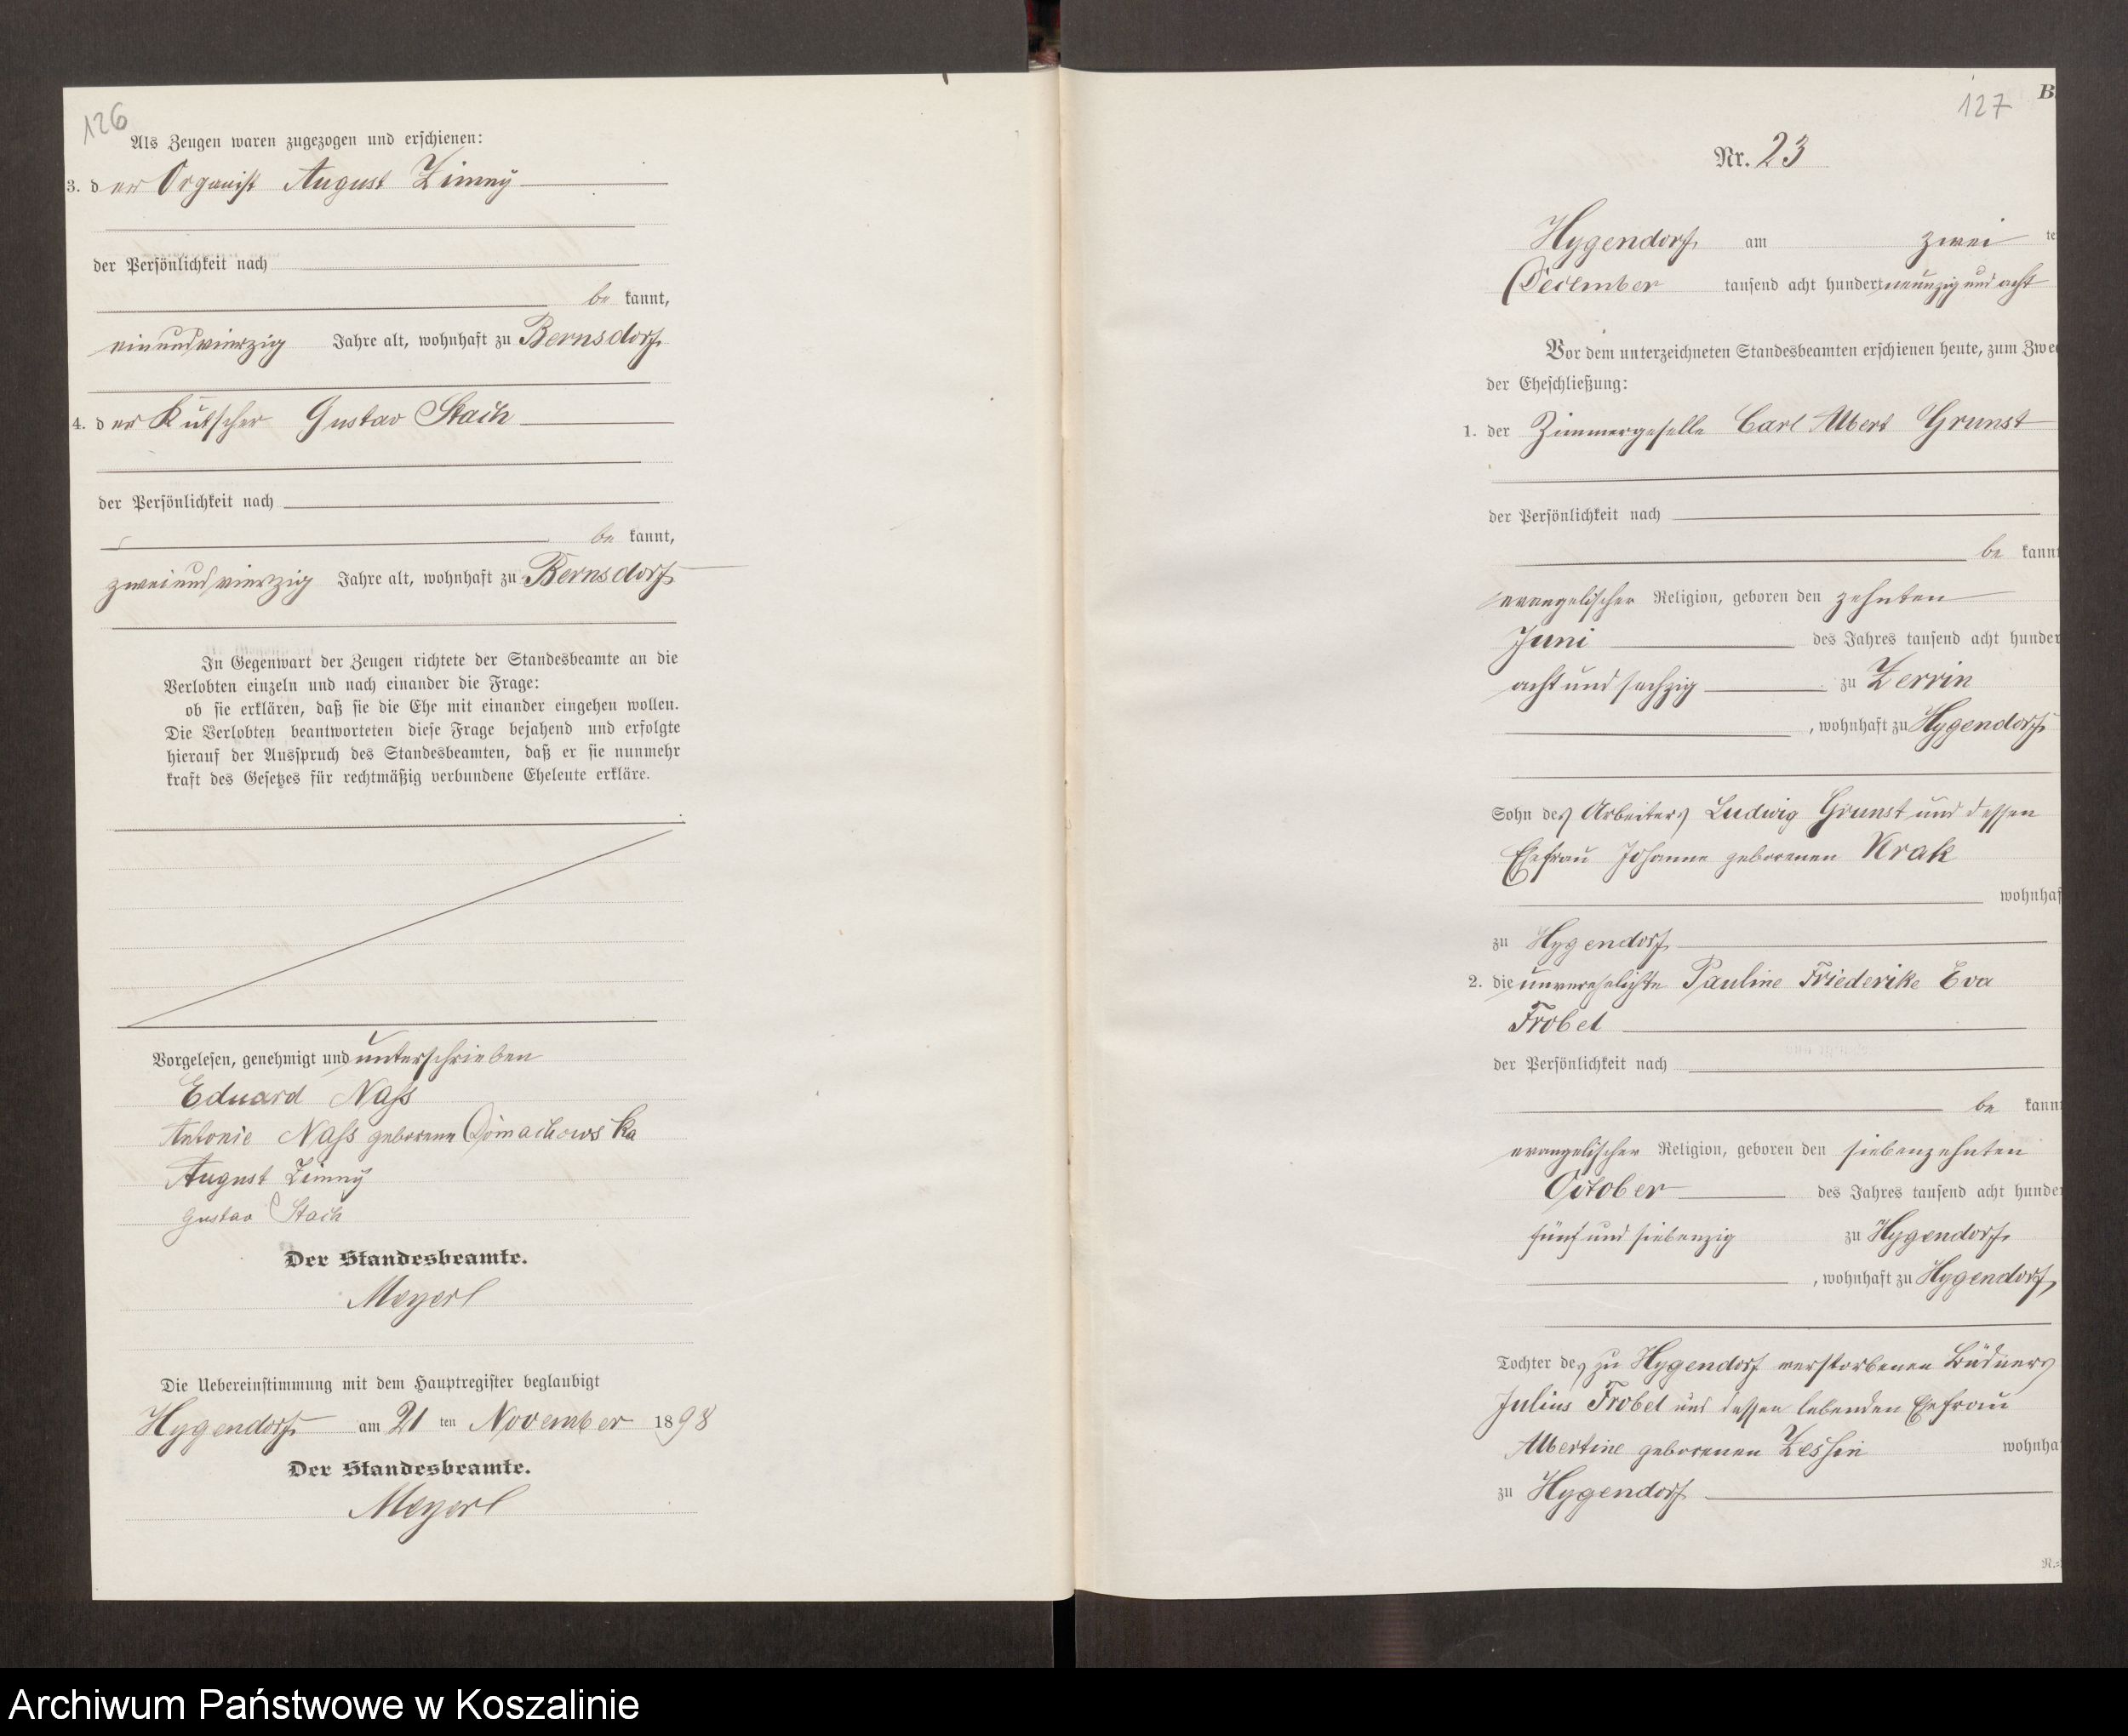 126
Als Zeugen waren zugezogen und erschienen:
3. der Organist August Zimny
der Persönlichkeit nach
be kannt,
einundvierzig Jahre alt, wohnhaft zu Bernsdorf
4. der Kutscher Gustav Stach
der Persönlichkeit nach
be kannt,
zweiundvierzig Jahre alt, wohnhaft zu Bernsdorf
In Gegenwart der Zeugen richtete der Standesbeamte an die
Verlobten einzeln und nach einander die Frage:
ob sie erklären, daß sie die Ehe mit einander eingehen wollen.
Die Verlobten beantworteten diese Frage bejahend und erfolgte
hierauf der Ausspruch des Standesbeamten, daß er sie nunmehr
kraft des Gesetzes für rechtmäßig verbundene Eheleute erkläre.
Vorgelesen, genehmigt und unterschrieben
Eduard Nass
Antonie Nass geborene Domachowska
August Zimny
Gustav Stach
Der Standesbeamte.
Meyerl
Die Uebereinstimmung mit dem Hauptregister beglaubigt
Hygendorf am 21 ten November 1898
Der Standesbeamte.
Meyerl
127
B.
Nr. 23
Hygendorf am zwei te
December tausend acht hundert neunzig und acht
Vor dem unterzeichneten Standesbeamten erschienen heute, zum Zwe
der Eheschließung:
1. der Zimmergeselle Carl Albert Grunst
der Persönlichkeit nach
be kann
evangelischer Religion, geboren den zehnten
Juni des Jahres tausend acht hunder
acht und sechzig zu Zerrin
, wohnhaft zu Hygendorf
Sohn des Arbeiters Ludwig Grunst und dessen
Ehefrau Johanne geborenen Krak
wohnhaf
zu Hygendorf
2. die unverehelichte Pauline Friederike Eva
Frobel
der Persönlichkeit nach
be kann
evangelischer Religion, geboren den siebenzehnten
October des Jahres tausend acht hunde
fünf und siebenzig zu Hygendorf
, wohnhaft zu Hygendorf
Tochter des zu Hygendorf verstorbenen Büdners
Julius Frobel und dessen lebenden Ehefrau
Albertine geborenen Zessin wohnha
zu Hygendorf
Archiwum Państwowe w Koszalinie